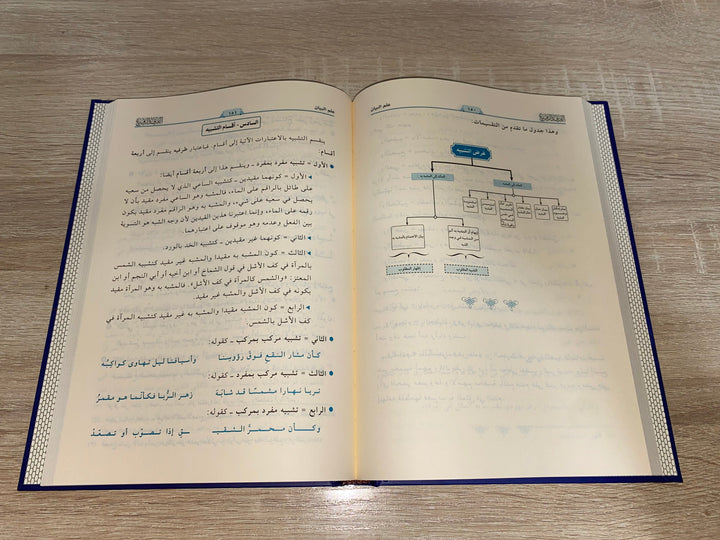 علم البيان
١٥٠
وهذا جدول ما تقدم من التقسيمات:
غرض التشبيه
عائد إلى المشبه
عائد إلى المشبه به
بيان الاهتمام بالمشبه به
إيهام أن المشبه به
إظهار المطلوب
التشبيه المقلوب
علم البيان
١٥١
السادس - أقسام التشبيه
ينقسم التشبيه بالاعتبارات الآتية إلى أقسام. فباعتبار طرفيه ينقسم إلى أربعة
أقسام:
الأول = تشبيه مفرد بمفرد - وينقسم هذا إلى أربعة أقسام أيضا:
الأول = كونهما مقيدين - كتشبيه الساعي الذي لا يحصل من سعيه
على طائل بالراقم على الماء، فالمشبه وهو الساعي مفرد مقيد بأن لا
يحصل في سعيه على شيء، والمشبه به وهو الراقم مفرد مقيد بكون
رقمه على الماء، وإنما اعتبرنا هذين القيدين لأن وجه الشبه هو التسوية
بين الفعل وعدمه وهو موقوف على اعتبارهما.
الثاني = كونهما غير مقيدين - كتشبيه الخد بالورد.
الثالث = كون المشبه مقيدا والمشبه به غير مقيد كتشبيه الشمس
بالمرآة في كف الأشل في قول الشماخ أو ابن أخيه أو أبي النجم أو ابن
المعتز: «والشمس كالمرآة في كف الأشل». فالمشبه به وهو المرآة مقيد
بكونه في كف الأشل والمشبه غير مقيد.
الرابع = كون المشبه مقيدا والمشبه به غير مقيد كتشبيه المرآة في
كف الأشل بالشمس.
الثاني = تشبيه مركب بمركب - كقوله:
كأن مثار النقع فوق رؤوسنا وأسيافنا ليل تهاوى كواكبه
الثالث = تشبيه مركب بمفرد - كقوله:
تريا نهارا مشمسا قد شابه زهر الربا فكأنما هو مقمر
الرابع = تشبيه مفرد بمركب - كقوله:
وكأن محمر الشقيـ ـق إذا تصوب أو تصعد